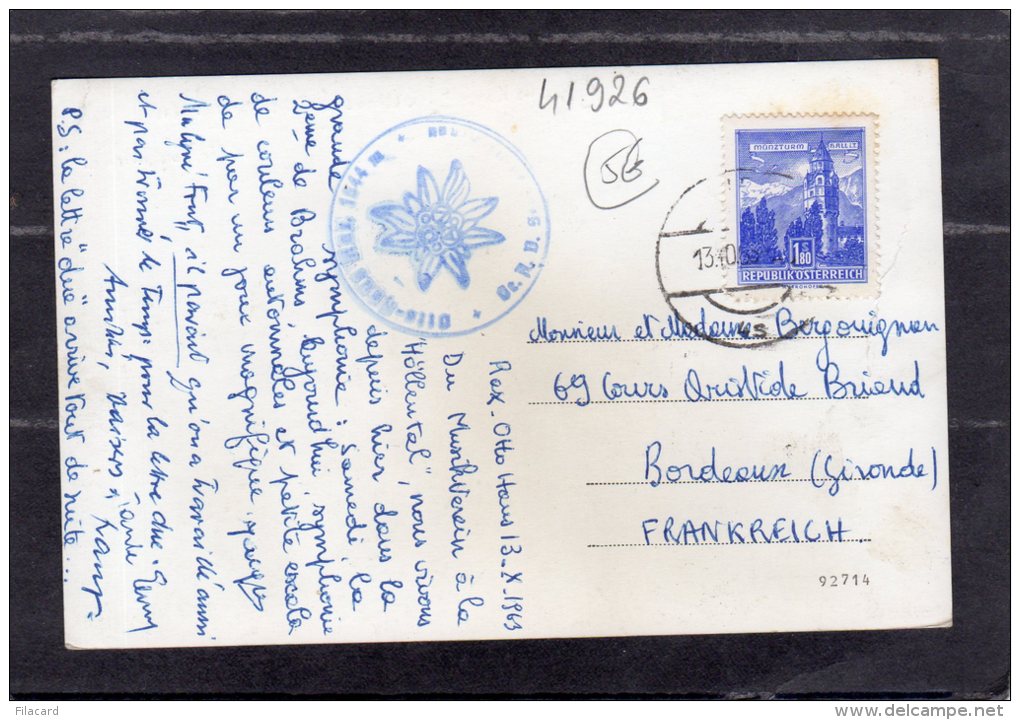 41926
56
MÜNZTURM HALL I.T.
1 S 80
REPUBLIK ÖSTERREICH
Otto-Haus 1644 m
Oe. A. V. S.
Rax-Otto Haus 13-X-1963
Du Musikverein à la
"Höllental", nous vivons
depuis hier dans la
grande symphonie: Samedi la
2ème de Brahms, aujourd'hui symphonie
de couleurs automnales et petite escala
de par un jour magnifique.
Malgré tout, il paraît qu'on a travaillé aussi
et pas trouvé le temps pour la lettre due.
Amitiés, baisers
P.S: la lettre "due" arrive tout de suite..
Monsieur et Madame Bergouignan
69 Cours Aristide Briand
Bordeaux (Gironde)
FRANKREICH
92714
Filacard
www.delcampe.net